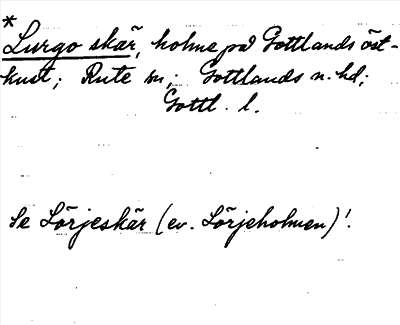 *
Lurgo skär, holme på Gottlands öst-
kust; Rute sn; Gottlands n. hd;
Gottl. l.
Se Lörjeskär (ev. Lörjeholmen)!.